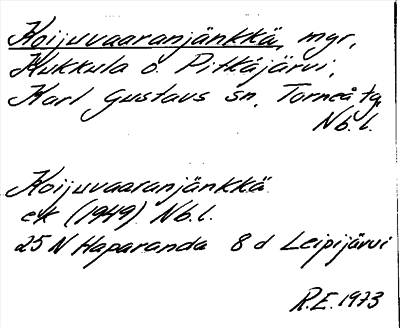 Koijuvaaranjänkkä, mgr,
Kukkula o. Pitkäjärvi,
Karl Gustavs sn, Torneå tg
Nb. l.
Koijuvaaranjänkkä
ek (1949) Nb. l.
25 N Haparanda 8 d Leipijärvi
R.E. 1973